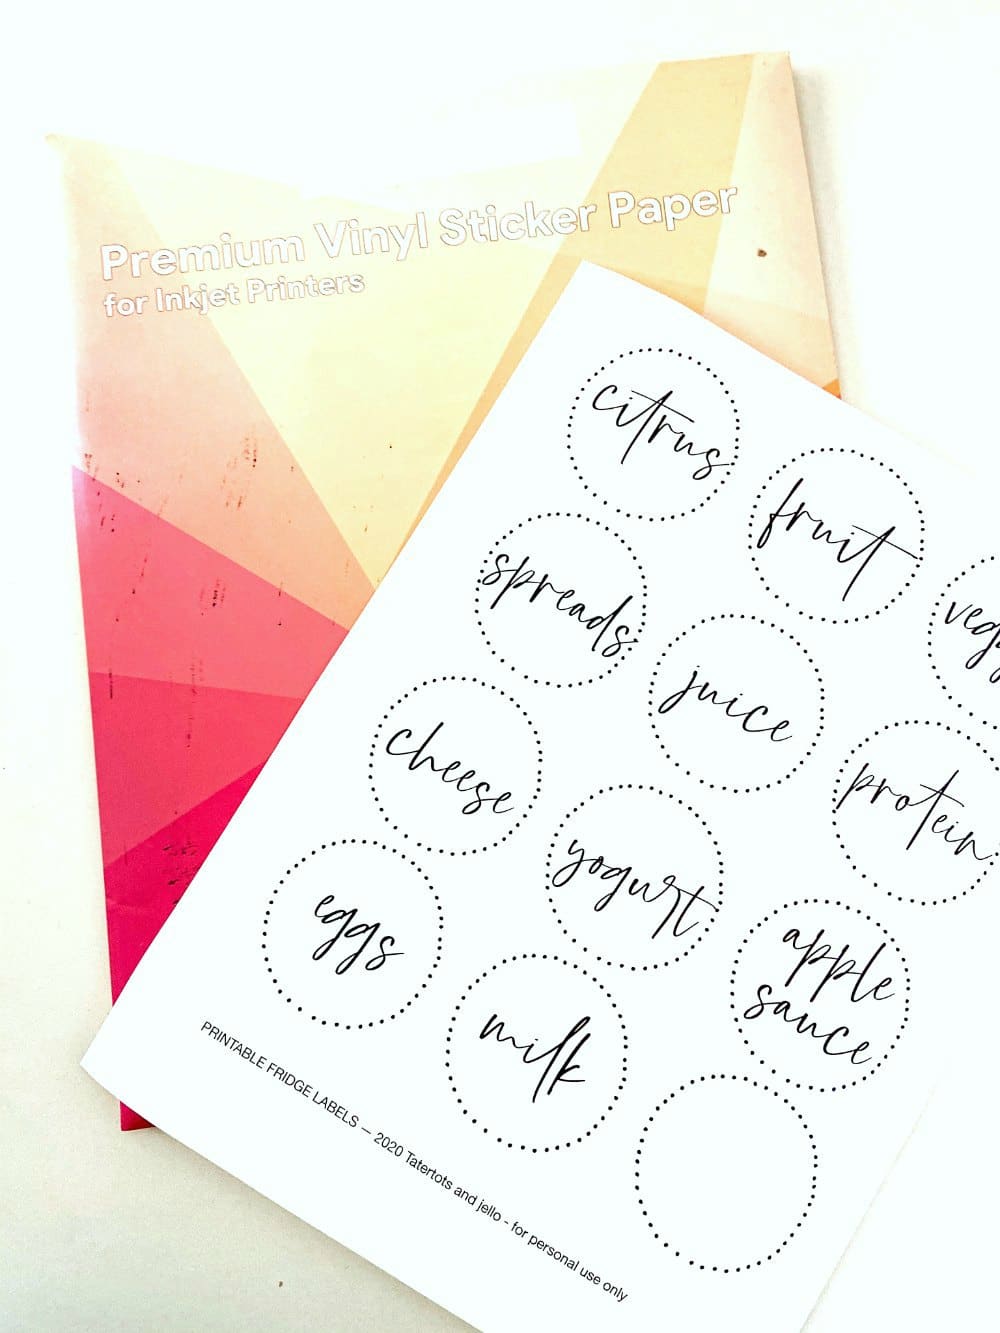 Premium Vinyl Sticker Paper
for Inkjet Printers
citrus
fruit
spreads
juice
cheese
protein
yogurt
eggs
apple
sauce
milk
PRINTABLE FRIDGE LABELS — 2020 Tatertots and jello - for personal use only